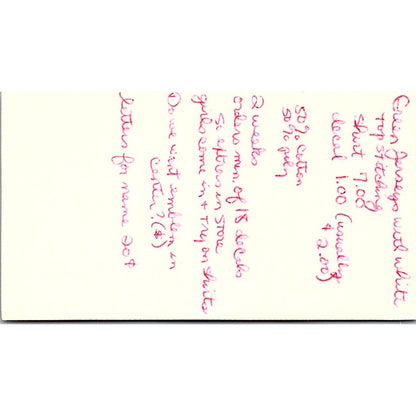 Green Jerseys with white
top stitching
shirt 7.00
decal 1.00 (usually
$2.00)
50% Cotton
50% poly
2 weeks
orders min. of 18 decals
So extras in store
girls come in + try on shirts
Do we want emblem in
center? ($)
letters for name 20¢